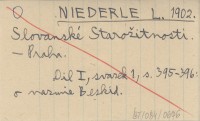 O NIEDERLE L. 1902.
Slovanské Starožitnosti.
— Praha.
Díl I, svazek 1, s. 395-396:
o nazwie Beskid.